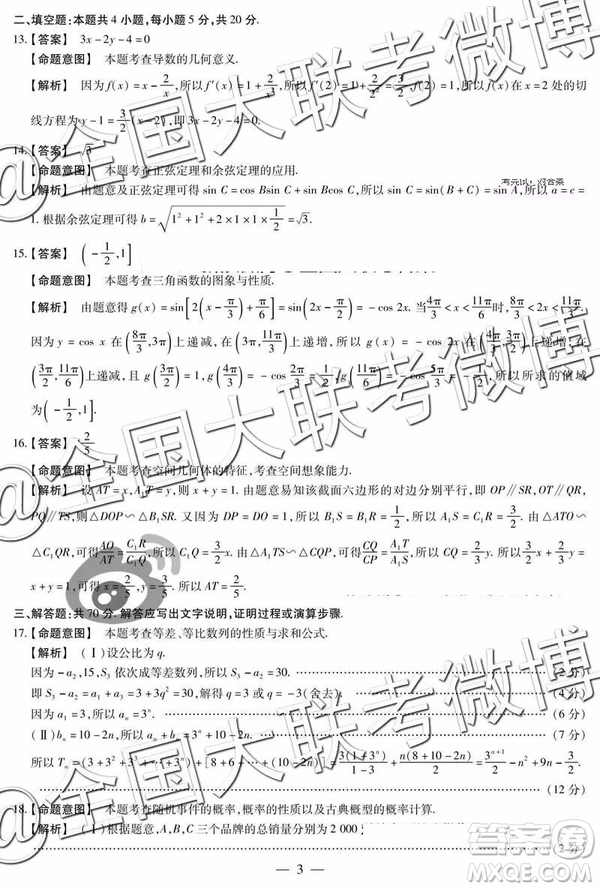 二、填空题:本题共4小题,每小题5分,共20分.
13.【答案】 3x-2y-4=0
【命题意图】 本题考查导数的几何意义.
【解析】 因为f(x)=x-2/x,所以f'(x)=1+2/x²,所以f'(2)=1+2/2²=3/2,f(2)=1,所以f(x)在x=2处的切
线方程为y-1=3/2(x-2),即3x-2y-4=0.
14.【答案】 √3
【命题意图】 本题考查正弦定理和余弦定理的应用.
【解析】 由题意及正弦定理可得sin C=cos Bsin C+sin Bcos C,所以sin C=sin(B+C)=sin A,所以a=c=
1.根据余弦定理可得b=√(1²+1²+2×1×1×1/2)=√3.
15.【答案】 (-1/2,1]
【命题意图】 本题考查三角函数的图象与性质.
【解析】 由题意得g(x)=sin[2(x-π/3)+π/6]=sin(2x-π/2)=-cos 2x.当4π/3<x<11π/6时,8π/3<2x<11π/3.
因为y=cos x在(8π/3,3π)上递减,在(3π,11π/3)上递增,所以g(x)=-cos 2x在(4π/3,3π/2)上递增,在
(3π/2,11π/6)上递减,且g(3π/2)=1,g(4π/3)=1/2,g(11π/6)=-1/2,所以所求的值域
为(-1/2,1].
16.【答案】 2/5
【命题意图】 本题考查空间几何体的特征,考查空间想象能力.
【解析】 设AT=x,A₁T=y,由题意易知该截面六边形的对边分别平行,即OP∥SR,OT∥QR,
PQ∥TS,则△DOP∽△B₁SR.又因为DP=DO=1,所以B₁S=B₁R=1,所以A₁S=C₁R=2.由△ATO∽
△C₁QR,可得AO/AT=C₁R/C₁Q
△A₁TS∽△CQP,可得CQ/CP=A₁T/A₁S
三、解答题:共70分.解答应写出文字说明,证明过程或演算步骤.
17.【命题意图】 本题考查等差、等比数列的性质与求和公式.
【解析】 (Ⅰ)设公比为q.
因为-a₂,15,S₃依次成等差数列,所以S₃-a₂=30. (2分)
即S₃-a₂=a₁+a₃=3+3q²=30,解得q=3或q=-3(舍去). (4分)
因为a₁=3,所以aₙ=3ⁿ. (6分)
(Ⅱ)bₙ=10-2n,所以aₙ+bₙ=3ⁿ+10-2n.
所以Tₙ=(3+3²+…+3ⁿ)+[8+6+…+(10-2n)]=3(1-3ⁿ)/(1-3)+n(8+10-2n)/2=(3ⁿ⁺¹)/2-n²+9n-3/2.
(12分)
18.【命题意图】 本题考查随机事件的概率,概率的性质以及古典概型的概率计算.
【解析】 (Ⅰ)根据题意,A,B,C三个品牌的总销量分别为2 000
(2分)
— 3 —
@全国大联考微博
@全国大联考微博